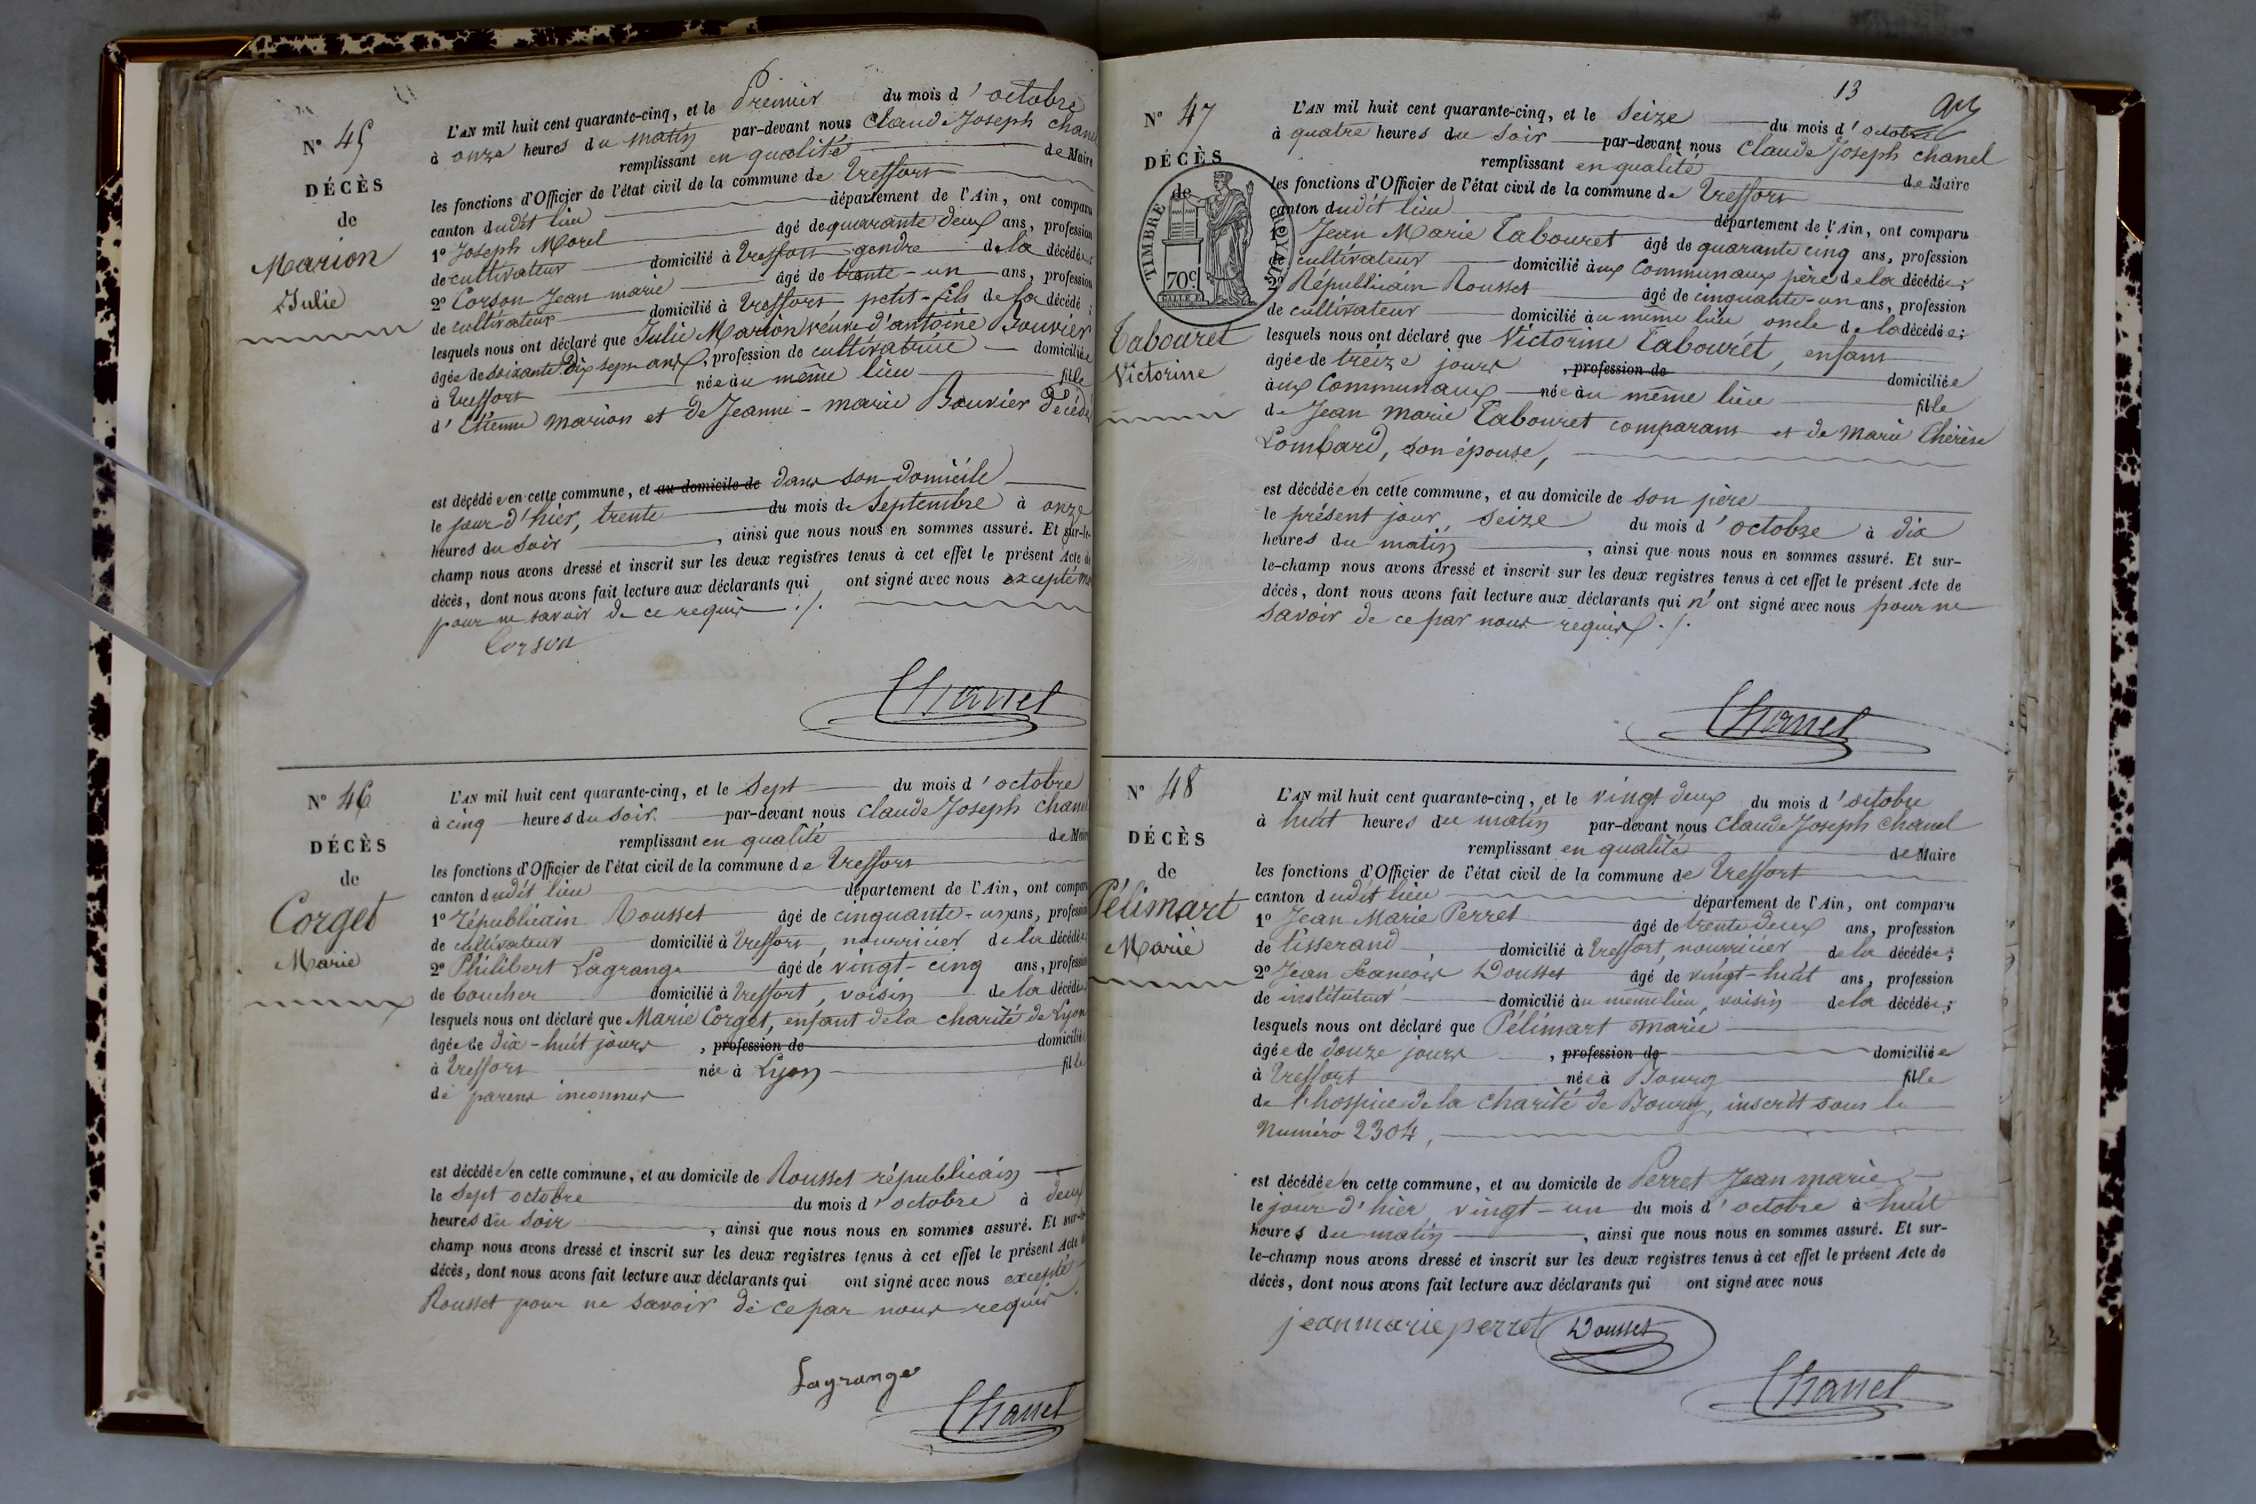 N° 45
DÉCÈS
de
Marion
Julie
L'AN mil huit cent quarante-cinq, et le Premier du mois d'octobre
à onze heures du matin par-devant nous Claude Joseph Chanel
remplissant en qualité de Maire
les fonctions d'Officier de l'état civil de la commune de Treffort
canton dudit lieu département de l'Ain, ont comparu
1° Joseph Morel âgé de quarante deux ans, profession
de cultivateur domicilié à Treffort gendre de la décédée
2° Corson Jean marie âgé de trente-un ans, profession
de cultivateur domicilié à Treffort petit-fils de la décédé ;
lesquels nous ont déclaré que Julie Marion veuve d'antoine Bouvier
âgée de soixante Dix sept ans, profession de cultivatrice domiciliée
à Treffort née au même lieu fille
d'Etienne Marion et de Jeanne-marie Bouvier Décédé
est décédée en cette commune, et au domicile de dans son domicile
le jour d'hier, trente du mois de Septembre à onze
heures du soir, ainsi que nous nous en sommes assuré. Et sur-le-
champ nous avons dressé et inscrit sur les deux registres tenus à cet effet le présent Acte de
décès, dont nous avons fait lecture aux déclarants qui ont signé avec nous excepté Mo
pour ne savoir de ce requis ./.
Corson
Chanel
N° 46
DÉCÈS
de
Corget
Marie
L'AN mil huit cent quarante-cinq, et le Sept du mois d'octobre
à cinq heures du soir par-devant nous Claude Joseph Chanel
remplissant en qualité de Maire
les fonctions d'Officier de l'état civil de la commune de Treffort
canton dudit lieu département de l'Ain, ont comparu
1° républicain Rousset âgé de cinquante-un ans, profession
de cultivateur domicilié à Treffort, nourricier de la décédée
2° Philibert Lagrange âgé de vingt-cinq ans, profession
de boucher domicilié à Treffort, voisin de la décédée
lesquels nous ont déclaré que Marie Corget, enfant de la charité de Lyon
âgée de dix-huit jours, profession de domiciliée
à Treffort née à Lyon fille
de parens inconnus
est décédée en cette commune, et au domicile de Rousset républicain
le sept octobre du mois d'octobre à deux
heures du soir, ainsi que nous nous en sommes assuré. Et sur-le-
champ nous avons dressé et inscrit sur les deux registres tenus à cet effet le présent Acte de
décès, dont nous avons fait lecture aux déclarants qui ont signé avec nous excepté
Rousset pour ne savoir de ce par nous requis.
Lagrange
Chanel
13
N° 47
DÉCÈS
de
TIMBRE ROYAL
70c
Tabouret
Victorine
L'AN mil huit cent quarante-cinq, et le seize du mois d'octobre
à quatre heures du soir par-devant nous Claude Joseph Chanel
remplissant en qualité de Maire
les fonctions d'Officier de l'état civil de la commune de Treffort
canton dudit lieu département de l'Ain, ont comparu
1° Jean Marie Tabouret âgé de quarante cinq ans, profession
de cultivateur domicilié aux Communaux père de la décédée ;
2° Républicain Rousset âgé de cinquante-un ans, profession
de cultivateur domicilié au même lieu oncle de la décédée ;
lesquels nous ont déclaré que Victorine Tabouret, enfant
âgée de treize jours, profession de domiciliée
aux Communaux née au même lieu fille
de Jean Marie Tabouret comparant et de Marie Thérèse
Lombard, son épouse,
est décédée en cette commune, et au domicile de son père
le présent jour, seize du mois d'octobre à dix
heures du matin, ainsi que nous nous en sommes assuré. Et sur-
le-champ nous avons dressé et inscrit sur les deux registres tenus à cet effet le présent Acte de
décès, dont nous avons fait lecture aux déclarants qui n'ont signé avec nous pour ne
savoir de ce par nous requis ./.
Chanel
N° 48
DÉCÈS
de
Pélimart
Marie
L'AN mil huit cent quarante-cinq, et le vingt deux du mois d'octobre
à huit heures du matin par-devant nous Claude Joseph Chanel
remplissant en qualité de Maire
les fonctions d'Officier de l'état civil de la commune de Treffort
canton dudit lieu département de l'Ain, ont comparu
1° Jean Marie Perret âgé de trente deux ans, profession
de tisserand, domicilié à Treffort, nourricier de la décédée ;
2° Jean francois Dousset âgé de vingt-huit ans, profession
de instituteur domicilié au même lieu, voisin de la décédée ;
lesquels nous ont déclaré que Pélimart Marie
âgée de douze jours, profession de domiciliée
à Treffort née à Bourg fille
de l'hospice de la charité de Bourg, inscrit sous le
Numéro 2304,
est décédée en cette commune, et au domicile de Perret Jean marie
le jour d'hier vingt-un du mois d'octobre à huit
heures du matin, ainsi que nous nous en sommes assuré. Et sur-
le-champ nous avons dressé et inscrit sur les deux registres tenus à cet effet le présent Acte de
décès, dont nous avons fait lecture aux déclarants qui ont signé avec nous
jean marie perret Dousset
Chanel